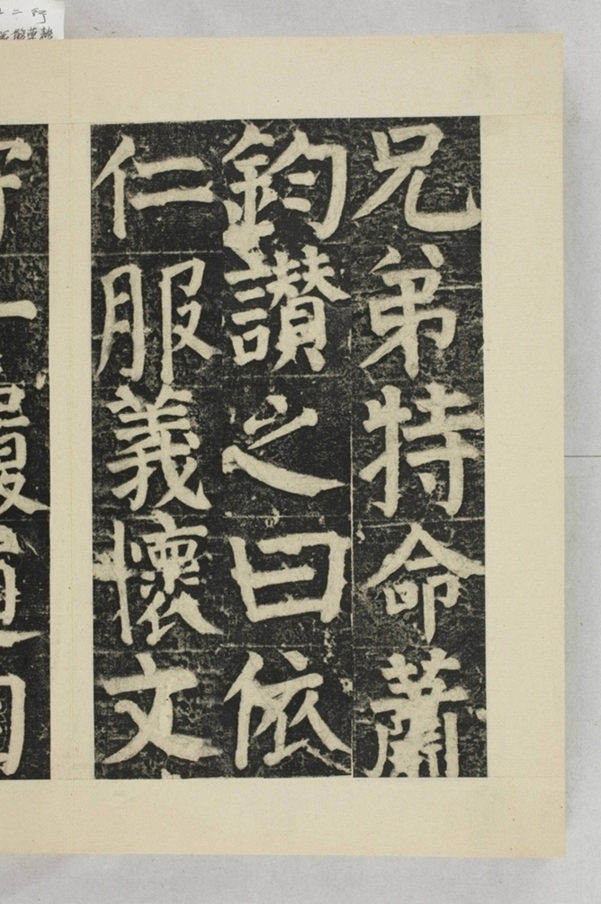 兄弟特命蕭
鈞讃之曰依
仁服義懷文